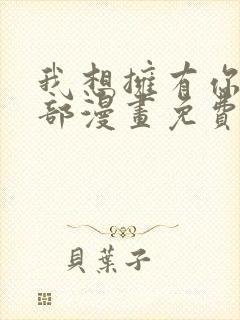 我想擁有你
部漫畫免費
貝葉子